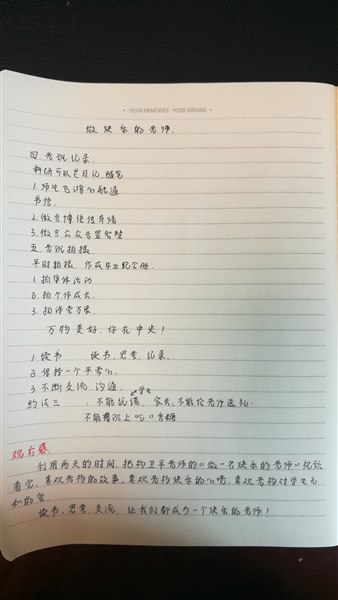 • YOUR MEMORIES · YOUR DREAMS •
做快乐的老师
四.老玩记录.
科研可以是日记、随笔
1.师生飞鸿心融通
书信.
2.做言博使传身情
3.做言公众号显智慧
五.老玩拍摄.
平时拍摄.作成毕业纪念册.
1.拍集体活动
2.拍个体成长.
3.拍评荣万象.
万物美好.你在中央!
1.读书 读书、思考、记录.
2.保持一个平常心.
3.不断交流、沟通.
约法三 : 不能说谎. 家长不能给老师送礼.
不能在班上吃口香糖
观后感.
利用两天的时间.把杨卫平老师的《做一名快乐的老师》视频
看完.喜欢老杨的故事,喜欢老杨快乐的心境.喜欢老杨对学生无
私的爱.
读书、思考、交流.让我们都成为一个快乐的老师!